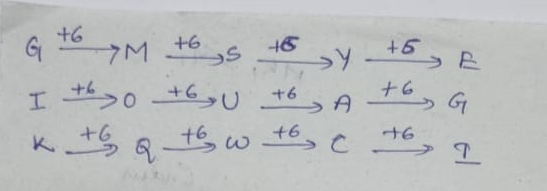 G +6→ M +6→ S +6→ Y +6→ E
I +6→ O +6→ U +6→ A +6→ G
K +6→ Q +6→ W +6→ C +6→ I